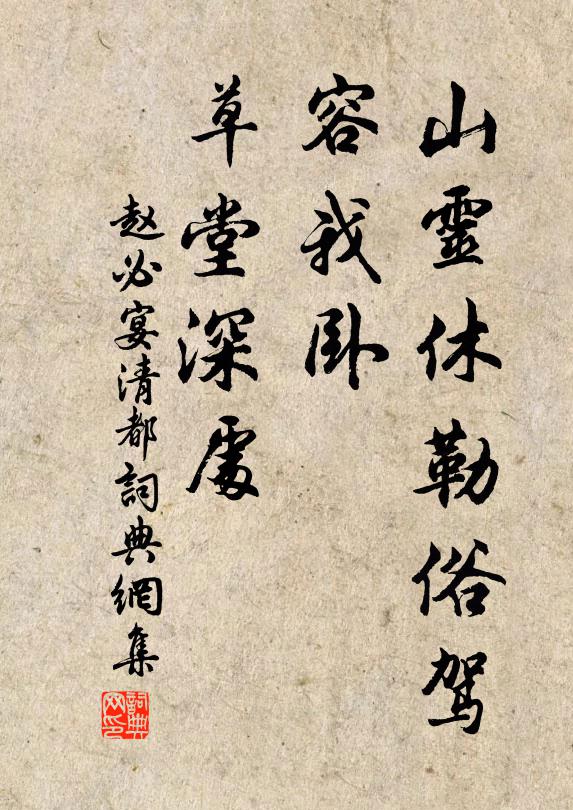 山靈休勒俗駕
容我卧
草堂深處
赵必宴清都詞典網集
詞典网印